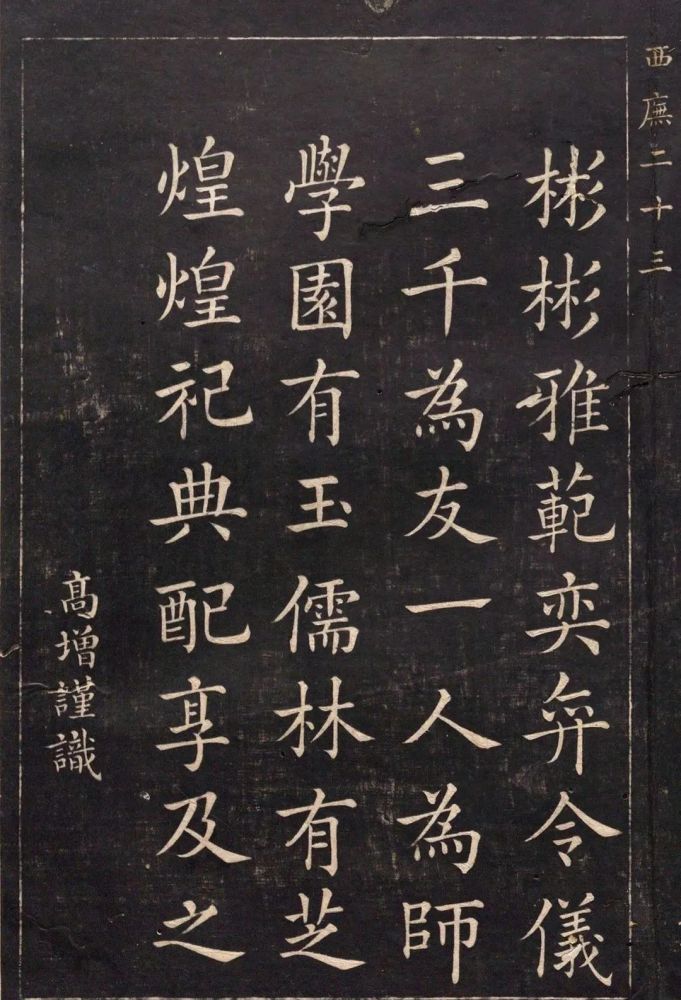 西廡二十三
彬彬雅範奕弈令儀
三千為友一人為師
學園有玉儒林有芝
煌煌祀典配享及之
髙增謹識